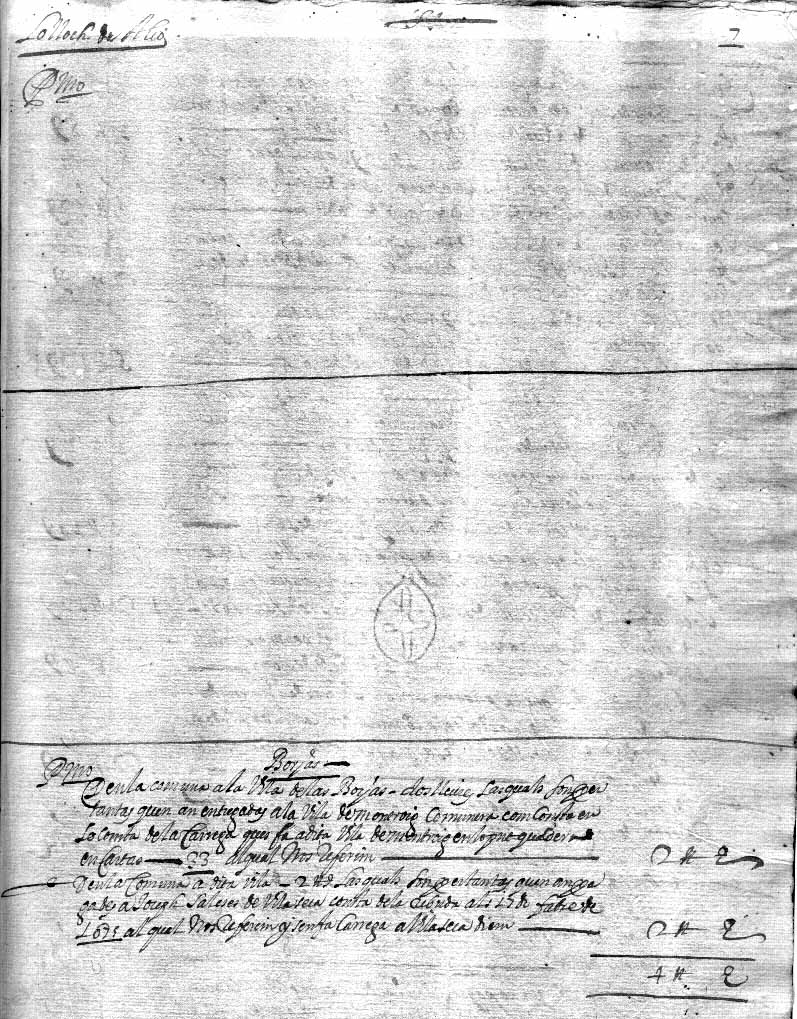 Lo lloch de Alio
7
Pmo
Borjas
Pmo
Deu la comuna a la Vila de las Borjas - dos lliures Las quals son per
tantas quen an entregadas a la Vila de montroig Comunera com Consta en
Lo Conta de la Carrega ques fa a dita Vila de montroig en lo pnt quadern
en Cartas 33 al qual Nos Referim 2 ħ ?
Deu la Comuna a dita Vila - 2 ħ Las quals son per tantas quen an pa
gades a Joseph Sales de Vilaseca consta de la Rebuda als 15 de
1675 al qual Nos Referim y sen fa Carrega a Vilaseca 2 ħ
4 ħ